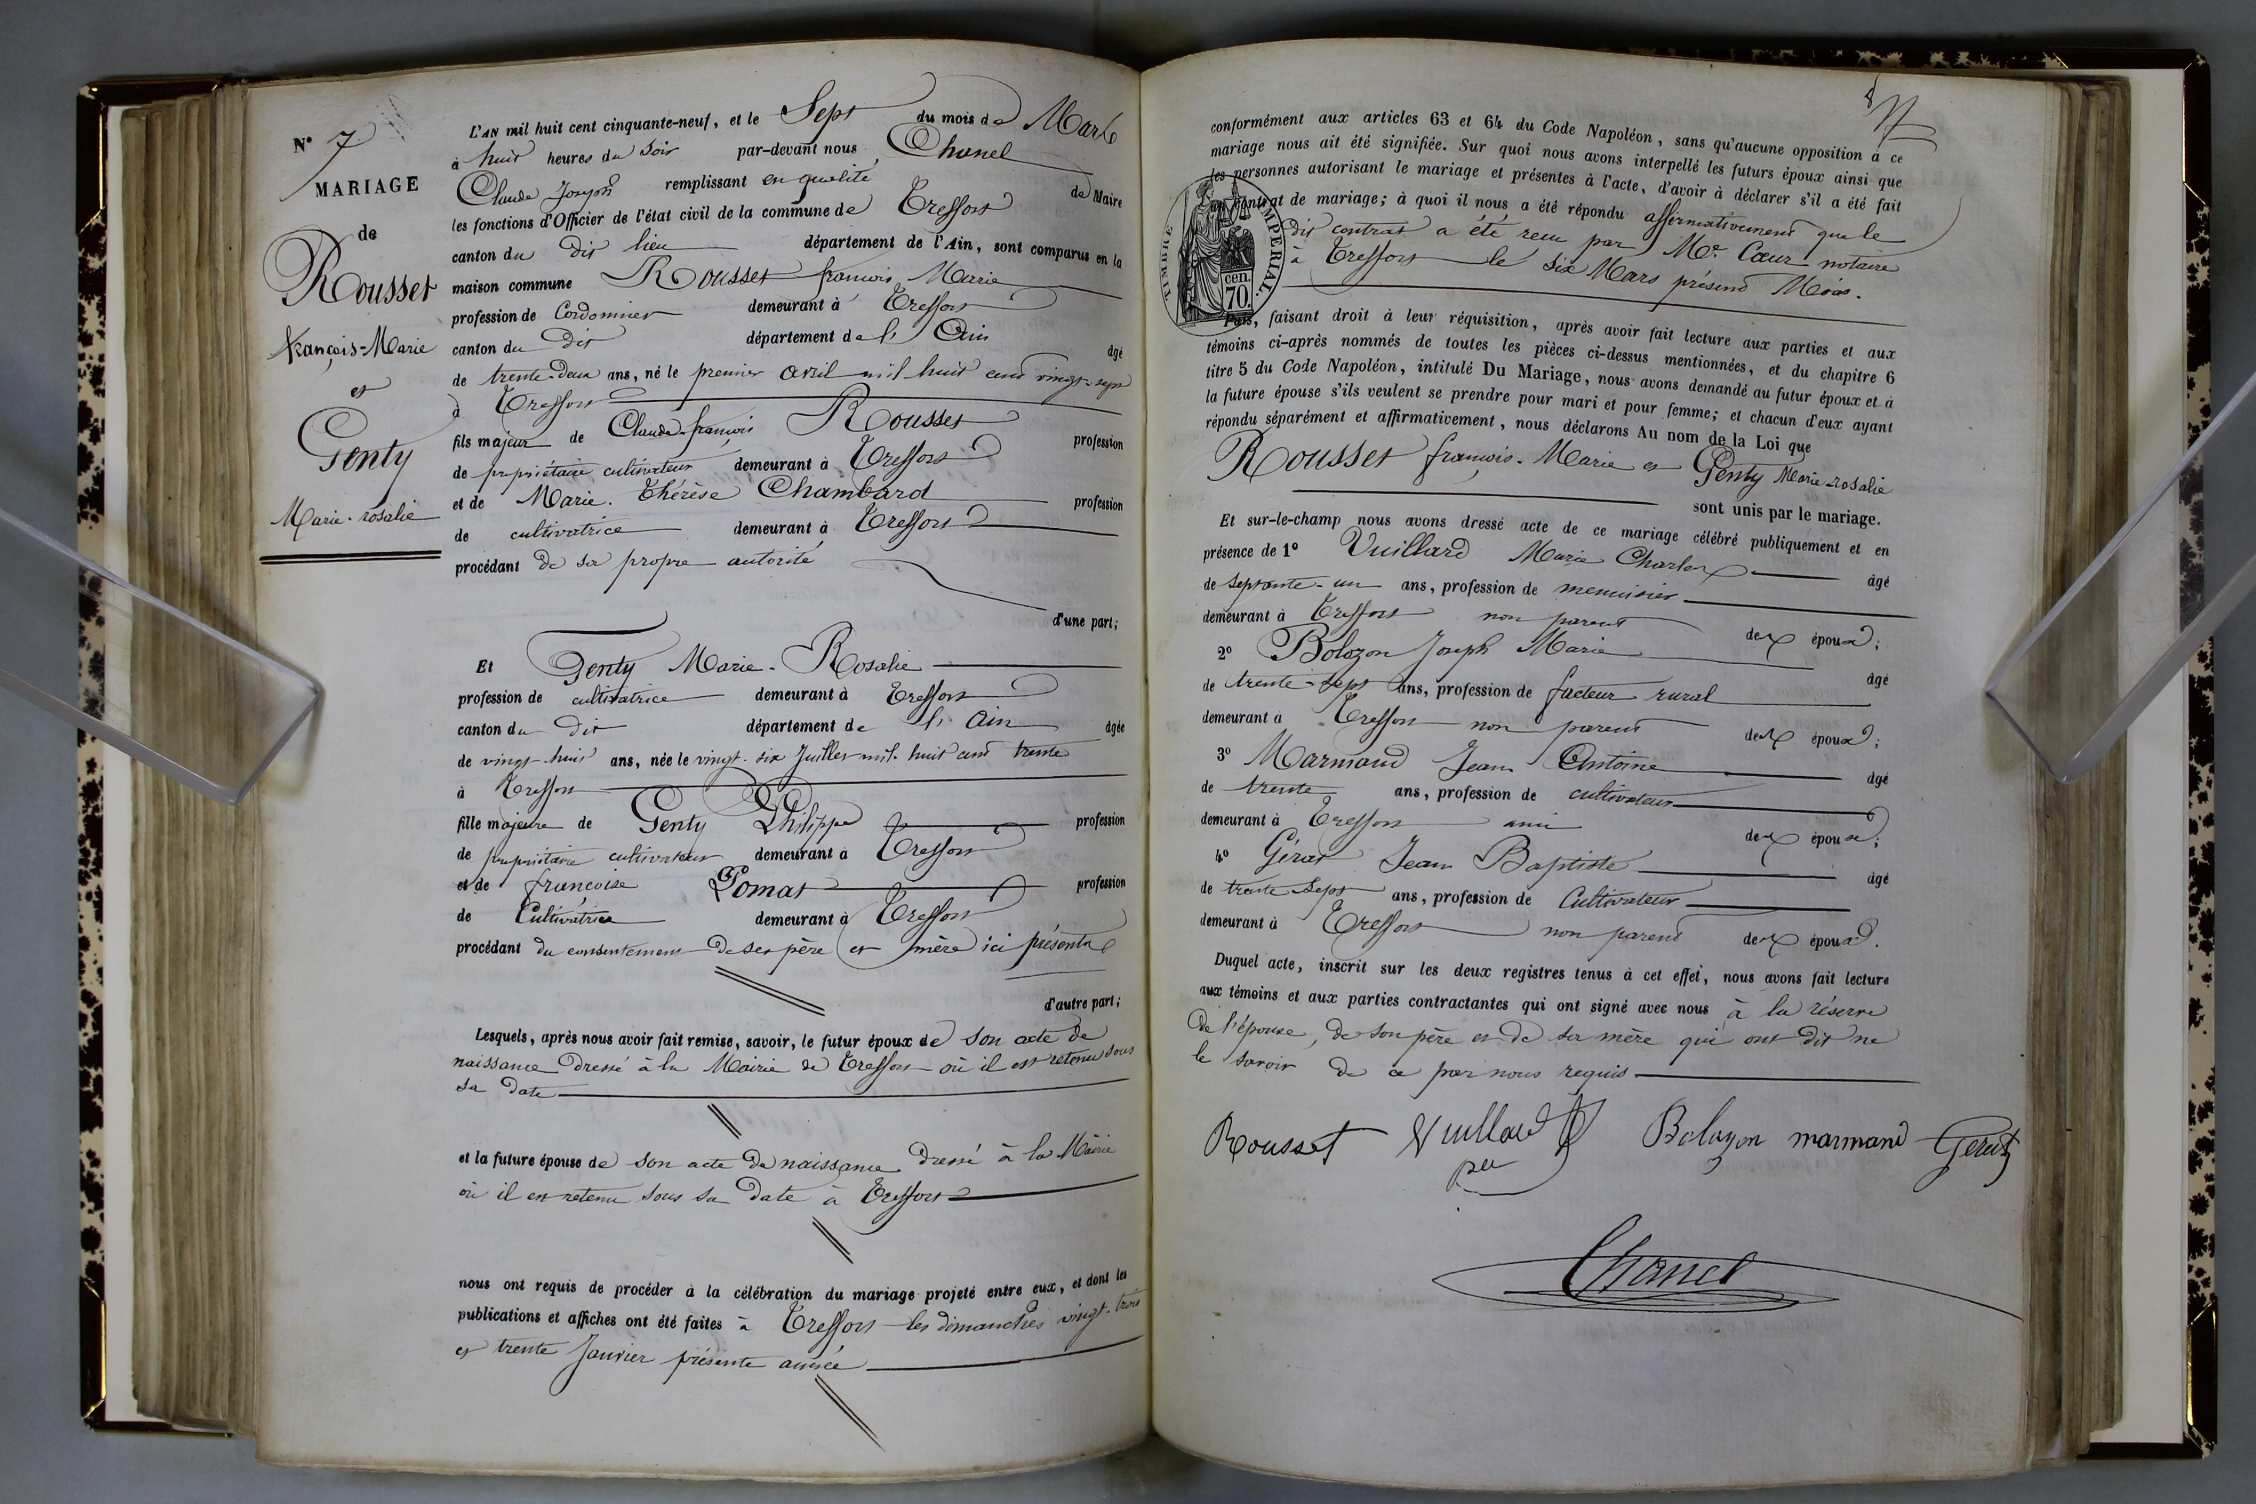 N° 7
MARIAGE
de
Rousset
François-Marie
et
Genty
Marie-rosalie
L'AN mil huit cent cinquante-neuf, et le Sept du mois de Mars
à huit heures du Soir par-devant nous Chanel
Claude Joseph remplissant en qualité de Maire
les fonctions d'Officier de l'état civil de la commune de Treffort
canton du dit lieu département de l'Ain, sont comparus en la
maison commune Rousset françois Marie
profession de Cordonnier demeurant à Treffort
canton du dit département de l'Ain âgé
de trente-deux ans, né le premier avril mil huit cent vingt-sept
à Treffort
fils majeur de Claude-françois Rousset profession
de propriétaire cultivateur demeurant à Treffort
et de Marie-Thérèse Chambard profession
de cultivatrice demeurant à Treffort
procédant de sa propre autorité
d'une part;
Et Genty Marie-Rosalie
profession de cultivatrice demeurant à Treffort
canton du dit département de l'Ain âgée
de vingt-huit ans, née le vingt-six Juillet mil-huit cent trente
à Treffort
fille majeure de Genty Philippe profession
de propriétaire cultivateur demeurant à Treffort
et de françoise Pomat profession
de Cultivatrice demeurant à Treffort
procédant du consentement de ses père et mère ici présents
d'autre part;
Lesquels, après nous avoir fait remise, savoir, le futur époux de son acte de
naissance dressé à la Mairie de Treffort où il est retenu sous
sa date
et la future épouse de son acte de naissance dressé à la Mairie
où il est retenu sous sa date à Treffort
nous ont requis de procéder à la célébration du mariage projeté entre eux, et dont les
publications et affiches ont été faites à Treffort les dimanches vingt-trois
et trente Janvier présente année
conformément aux articles 63 et 64 du Code Napoléon, sans qu'aucune opposition à ce
mariage nous ait été signifiée. Sur quoi nous avons interpellé les futurs époux ainsi que
les personnes autorisant le mariage et présentes à l'acte, d'avoir à déclarer s'il a été fait
un contrat de mariage; à quoi il nous a été répondu affirmativement que le
dit contrat a été reçu par Me Cœur notaire
à Treffort le six Mars présent Mois.
TIMBRE IMPERIAL.
cen.
70.
Puis, faisant droit à leur réquisition, après avoir fait lecture aux parties et aux
témoins ci-après nommés de toutes les pièces ci-dessus mentionnées, et du chapitre 6
titre 5 du Code Napoléon, intitulé Du Mariage, nous avons demandé au futur époux et à
la future épouse s'ils veulent se prendre pour mari et pour femme; et chacun d'eux ayant
répondu séparément et affirmativement, nous déclarons Au nom de la Loi que
Rousset françois-Marie et Genty Marie-rosalie
sont unis par le mariage.
Et sur-le-champ nous avons dressé acte de ce mariage célébré publiquement et en
présence de 1° Vuillard Marie Charles âgé
de septante-un ans, profession de menuisier
demeurant à Treffort non parent des époux;
2° Bolozon Joseph Marie âgé
de trente-sept ans, profession de facteur rural
demeurant à Treffort non parent des époux;
3° Marmand Jean Antoine âgé
de trente ans, profession de cultivateur
demeurant à Treffort ami des époux;
4° Gérat Jean Baptiste âgé
de trente-Sept ans, profession de Cultivateur
demeurant à Treffort non parent des époux.
Duquel acte, inscrit sur les deux registres tenus à cet effet, nous avons fait lecture
aux témoins et aux parties contractantes qui ont signé avec nous à la réserve
de l'épouse, de son père et de sa mère qui ont dit ne
le savoir de ce par nous requis
Rousset Vuillard Bolozon marmand Gerat
Chanel